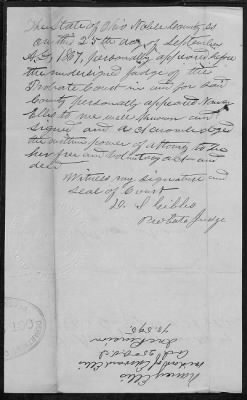 The State of Ohio Noble County ss
on this 25th day of September
A.D. 1867, personally appeared before
the undersigned Judge of the
Probate Court in and for said
County personally appeared Nancy
Ellis to me well known and
signed and acknowledged
the within power of attorney to be
her free and voluntary act and
deed
Witness my signature and
Seal of Court
W. S. Gibbs
Probate Judge
Nancy Ellis
Widow of Edward Ellis
Co. 25